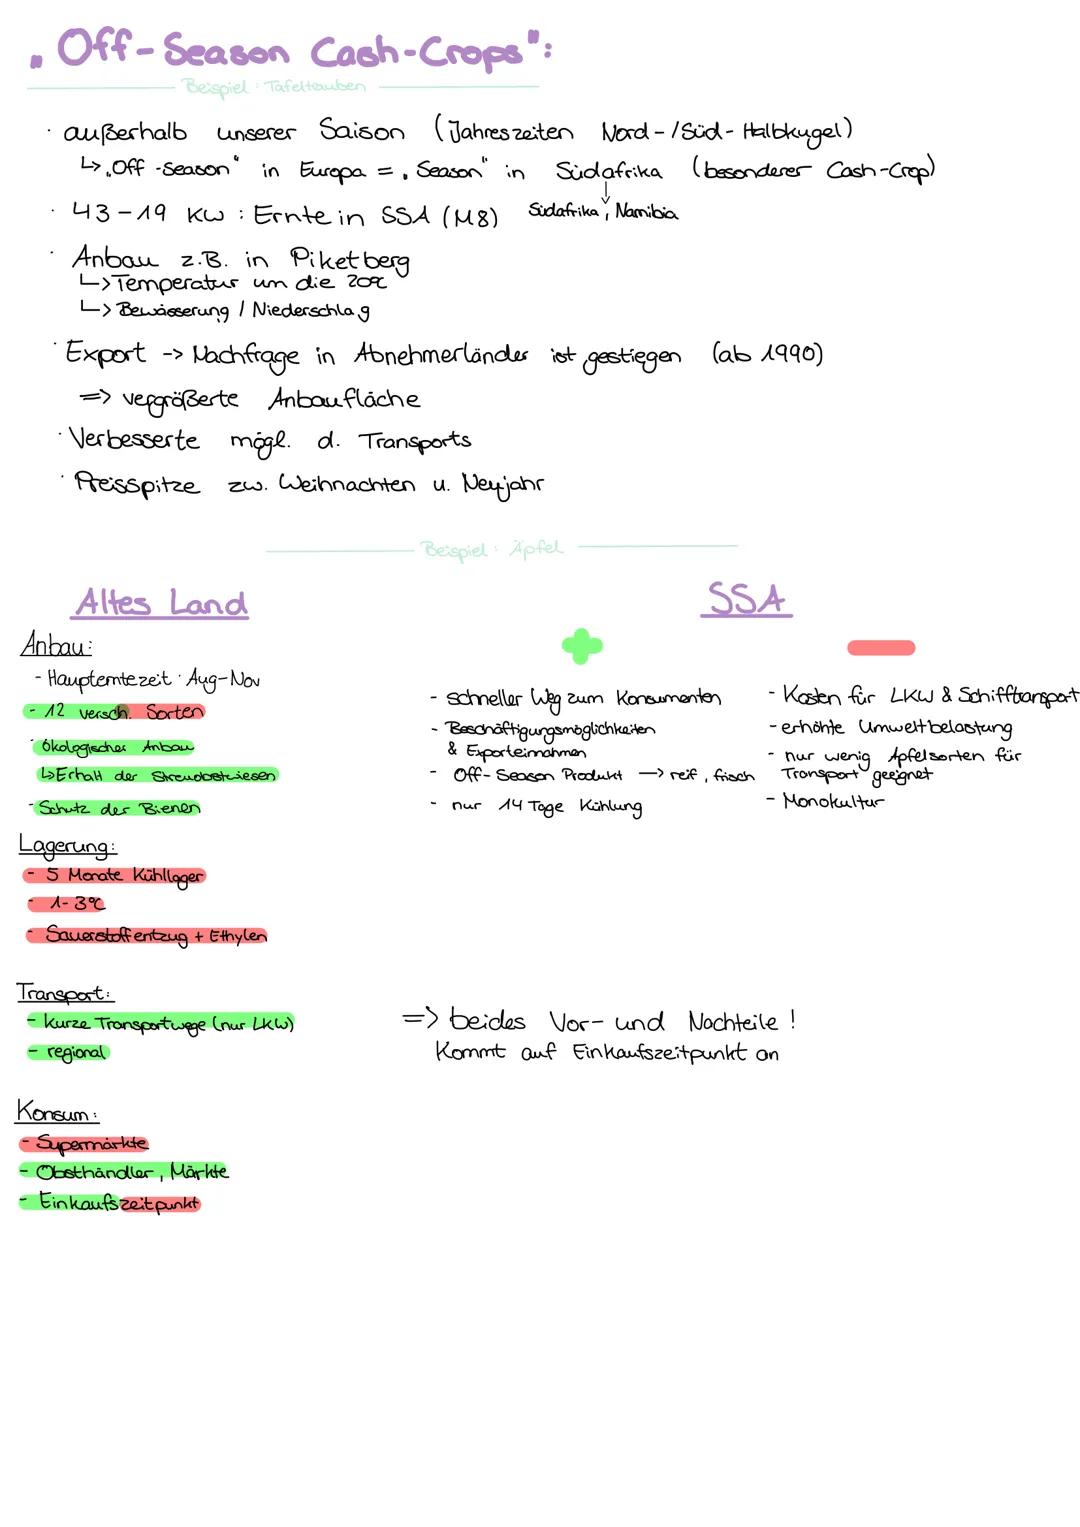 "Off-Season Cash-Crops":
Beispiel: Tafeltrauben
· außerhalb unserer Saison (Jahreszeiten Nord-/Süd-Halbkugel)
↳ „Off-Season" in Europa = „Season" in Südafrika (besonderer Cash-Crop)
· 43-19 KW: Ernte in SSA (M8) Südafrika, Namibia
· Anbau z.B. in Piketberg
↳ Temperatur um die 20°C
↳ Bewässerung / Niederschlag
· Export -> Nachfrage in Abnehmerländer ist gestiegen (ab 1990)
=> vergrößerte Anbaufläche
· Verbesserte mögl. d. Transports
· Preisspitze zw. Weihnachten u. Neujahr
Beispiel: Äpfel
Altes Land
SSA
Anbau:
- Haupterntezeit: Aug-Nov
- 12 versch. Sorten
- ökologischer Anbau
↳ Erhalt der Streuobstwiesen
- Schutz der Bienen
Lagerung:
- 5 Monate Kühllager
- 1-3°C
- Sauerstoffentzug + Ethylen
Transport:
- Kurze Transportwege (nur LKW)
- regional
Konsum:
- Supermärkte
- Obsthändler, Märkte
- Einkaufszeitpunkt
- schneller Weg zum Konsumenten
- Beschäftigungsmöglichkeiten
& Exporteinnahmen
- Off-Season Produkt -> reif, frisch
- nur 14 Tage Kühlung
- Kosten für LKW & Schifftransport
- erhöhte Umweltbelastung
- nur wenig Apfelsorten für
Transport geeignet
- Monokultur
=> beides Vor- und Nachteile!
Kommt auf Einkaufszeitpunkt an